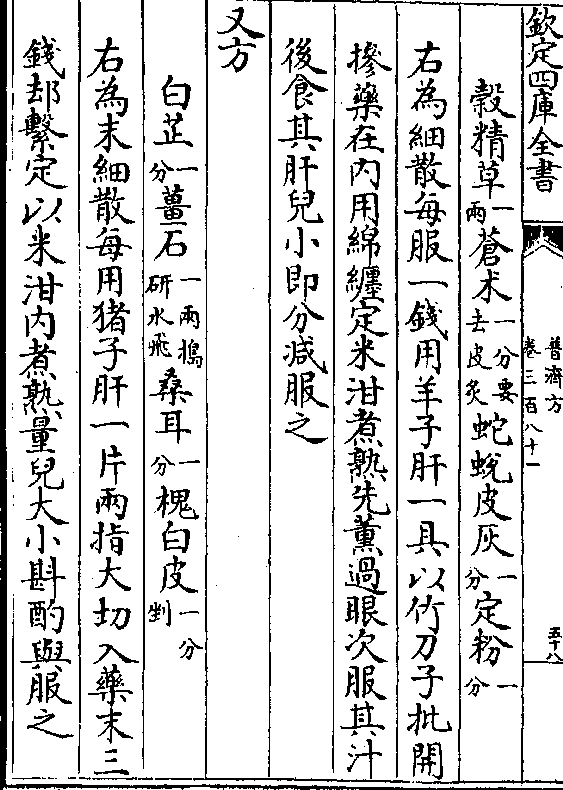 欽定四庫全書
普濟方
卷三百八十一
五十八
穀精草一兩蒼术一分要去皮炙蛇蛻皮灰一分定粉一分
右為細散每服一錢用羊子肝一具以竹刀子批開
摻藥在內用綿纏定米泔煮熟先薰過眼次服其汁
後食其肝兒小即分減服之
又方
白芷一分薑石一兩搗研水飛桑耳一分槐白皮一分剉
右為末細散每用猪子肝一片兩指大切入藥末三
錢却繫定以米泔內煮熟量兒大小斟酌與服之